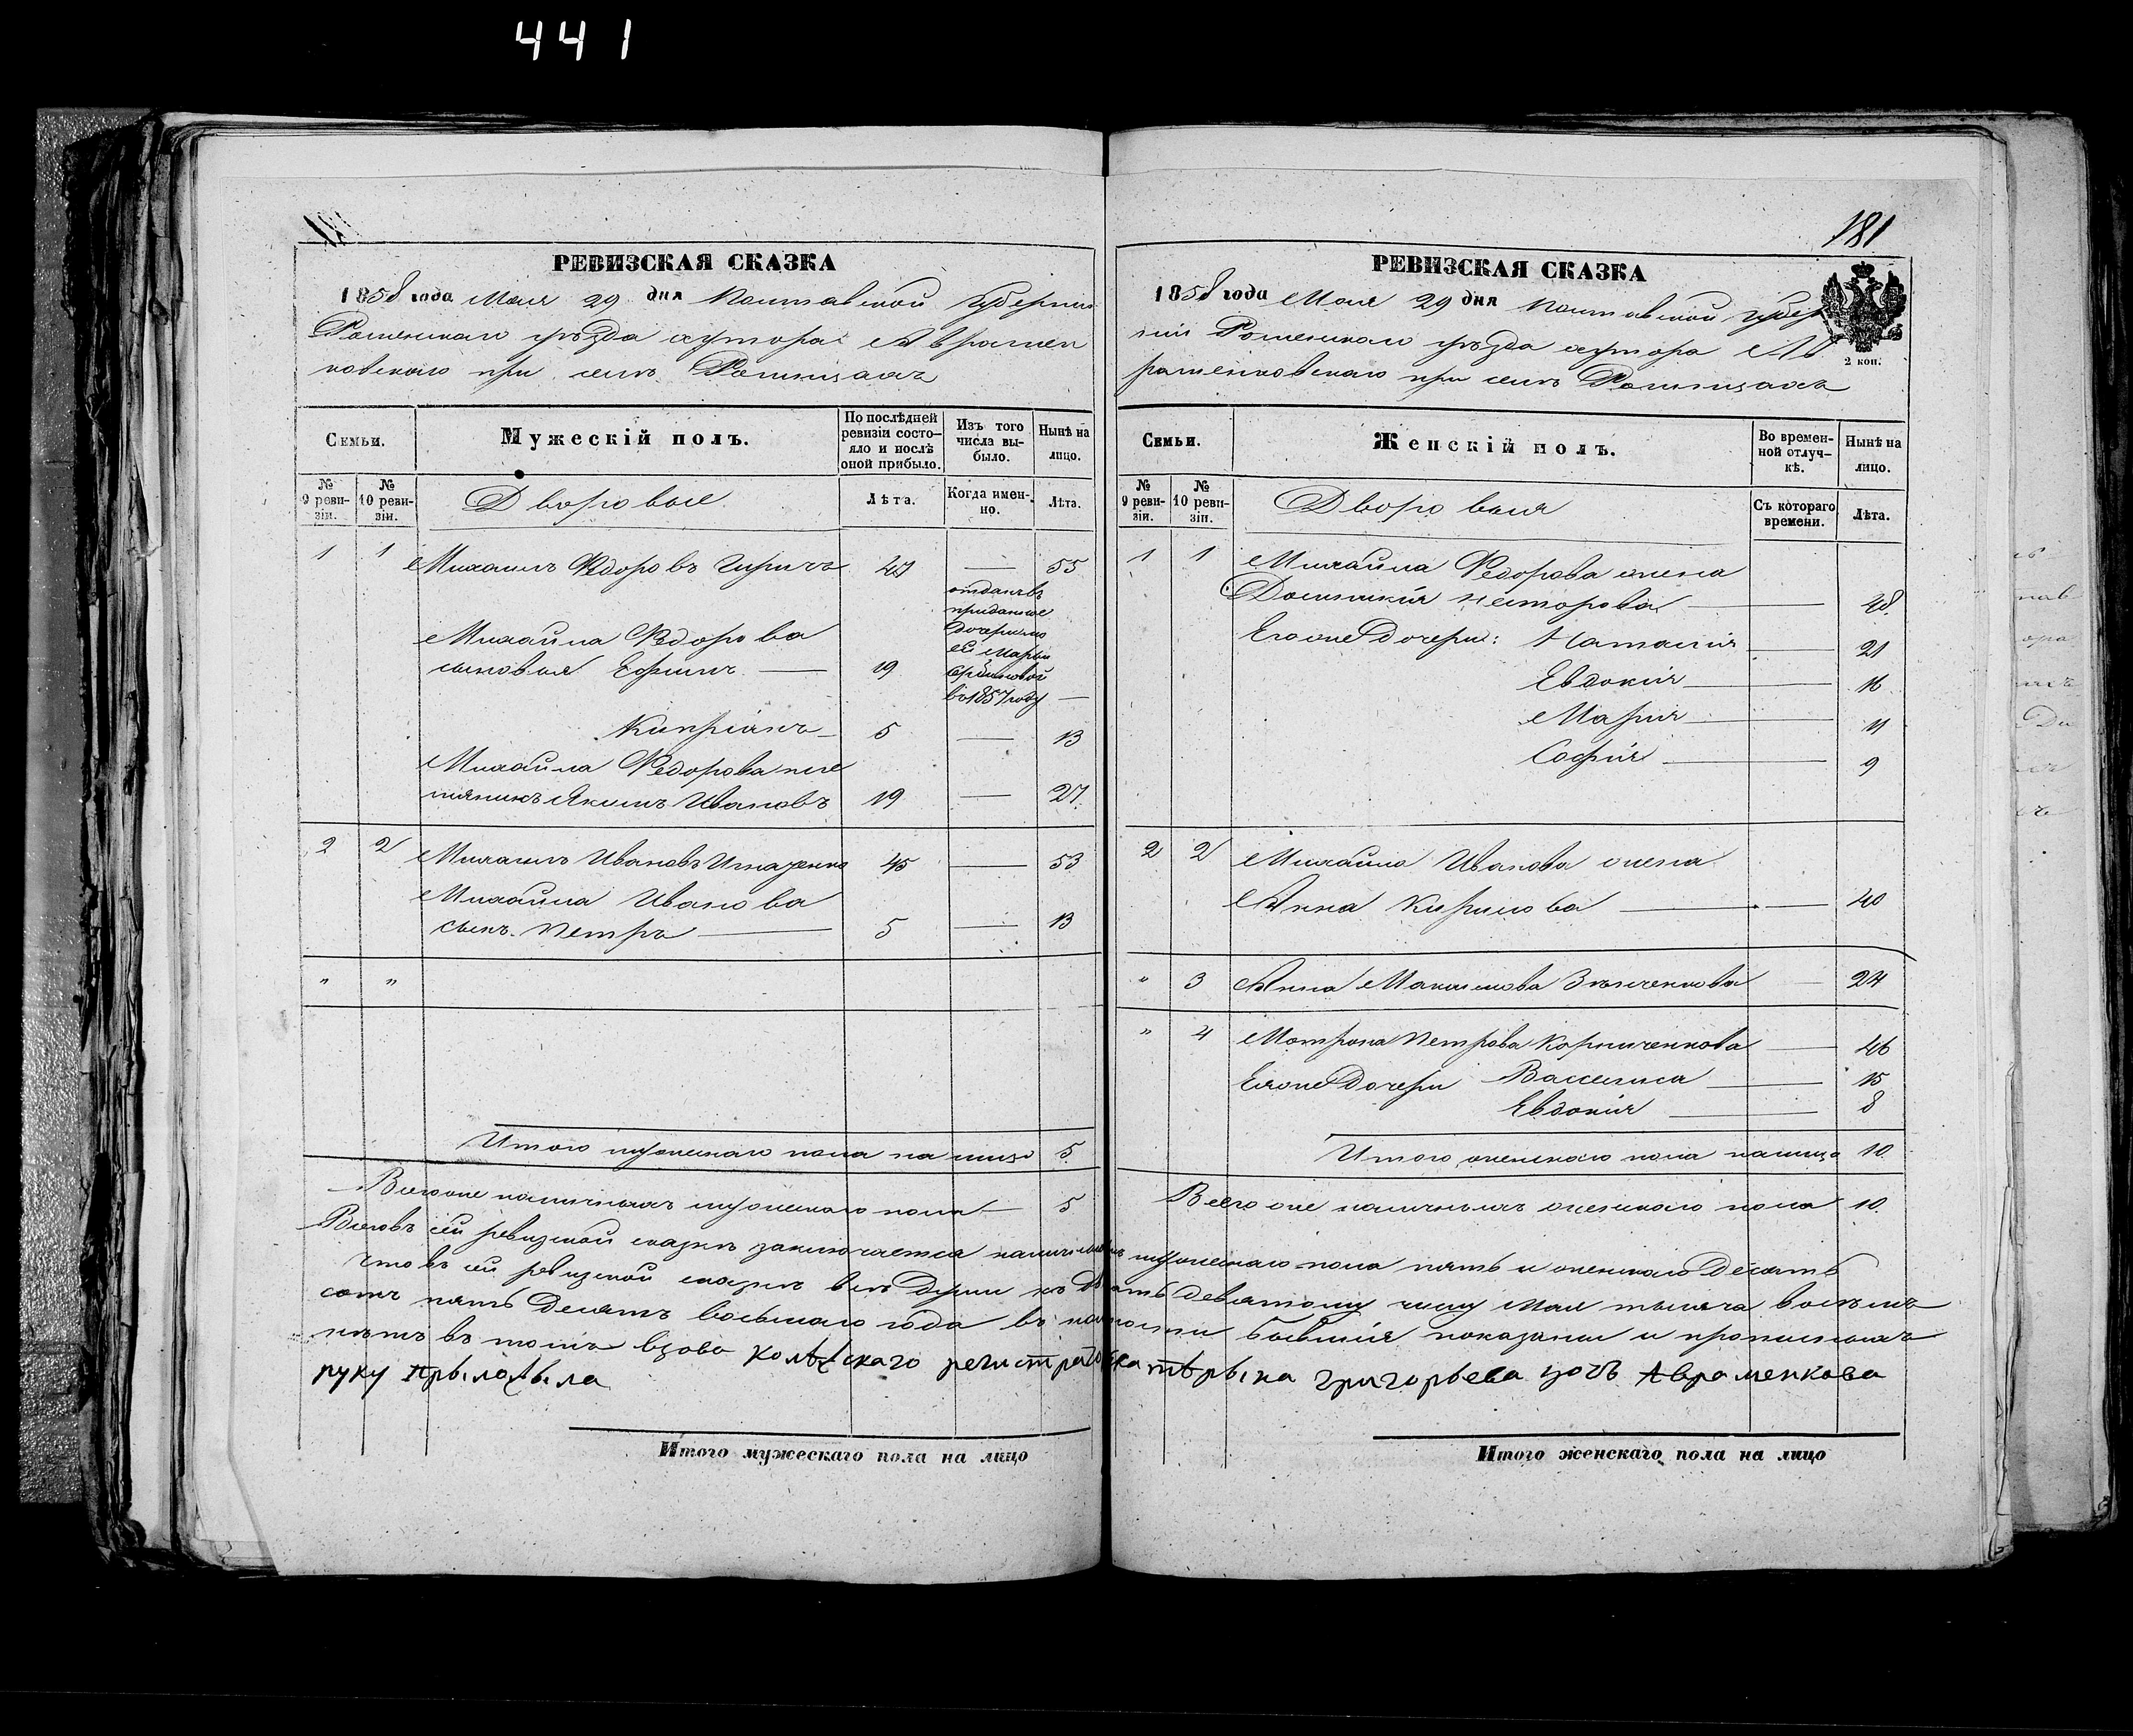 441
181
РЕВИЗСКАЯ СКАЗКА
1858 года Мая 29 дня Полтавской Губерніи
Роменскаго уѣзда хутора Авраmен
ковскаго при селѣ
Семьи.
Мужескій полъ.
По послѣдней ревизіи состояло и послѣ оной прибыло.
Изъ того числа выбыло.
Нынѣ на лицо.
№ 9 ревизіи.
№ 10 ревизіи.
Дворовые
Лѣта.
Когда именно.
Лѣта.
1 1 Михаилъ Ѳедоровъ 47 — 55
Михайла Ѳедорова
сыновья Ефимъ — 19
отданъ въ
приданное
дочерью
ея Марьи
въ 1857 году —
Кипріянъ 5 — 13
Михайла Ѳедорова пле
мяникъ Якимъ Ивановъ 19 — 27
2 2 Михаилъ Ивановъ Игнатенко 45 — 53
Михайла Иванова
сынъ Петръ — 5 — 13
" "
Итого мужескаго пола на лицо 5
Всего же наличныхъ мужескаго пола — 5
РЕВИЗСКАЯ СКАЗКА
1858 года Мая 29 дня Полтавской Губер
ніи Роменскаго уѣзда хутора Ав
раменковскаго при селѣ
2 коп.
Семьи.
Женскій полъ.
Во временной отлучкѣ.
Нынѣ на лицо.
№ 9 ревизіи.
№ 10 ревизіи.
Дворовыя
Съ котораго времени.
Лѣта.
1 1 Михайла Ѳедорова жена
Домникія Несторова — 48
Его же дочери: Наталія — 21
Евдокія — 16
Марія — 11
Софія — 9
2 2 Михайла Иванова жена
Анна Кирилова — 40
" 3 Анна Максимова — 24
" 4 Мотрона Петрова Корниченкова — 46
Ея же дочери Василиса — 15
Евдокія — 8
Итого женскаго пола налицо 10
Всего же наличныхъ женскаго пола 10
Всего въ сей ревизской сказкѣ заключается наличныхъ мужескаго пола пять и женскаго десять
Что въ сей ревизской сказкѣ всѣ души къ двадцать девятому числу Мая тысяча восемь
сотъ пять десятъ восьмаго года въ наличности бывшія показаны и прописныхъ
нѣтъ въ томъ вдова колѣжскаго регистратора катѣрына григорьева дочь Авраменкова
руку прыложыла
Итого мужескаго пола на лицо
Итого женскаго пола на лицо